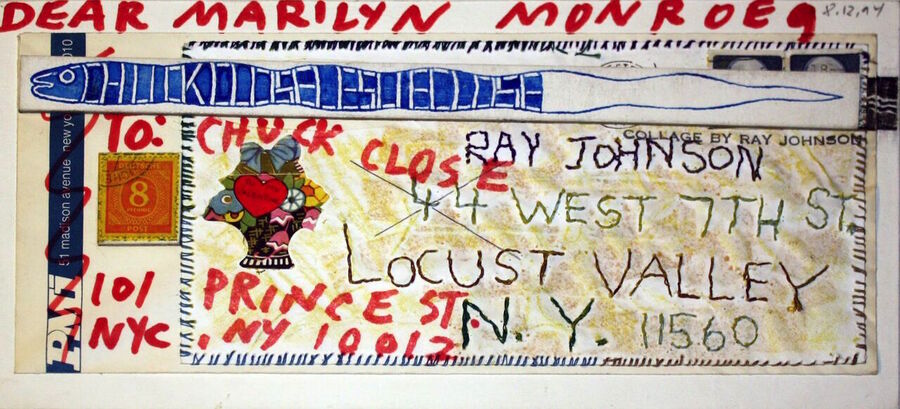 DEAR MARILYN MONROE
8.12.94
51 madison avenue new yo 010
TO: CHUCK CLOSE
COLLAGE BY RAY JOHNSON
RAY JOHNSON
44 WEST 7TH ST.
LOCUST VALLEY
N.Y. 11560
DEUTSCHE
8
PFENNIG
POST
101 PRINCE ST.
NYC. NY 10012